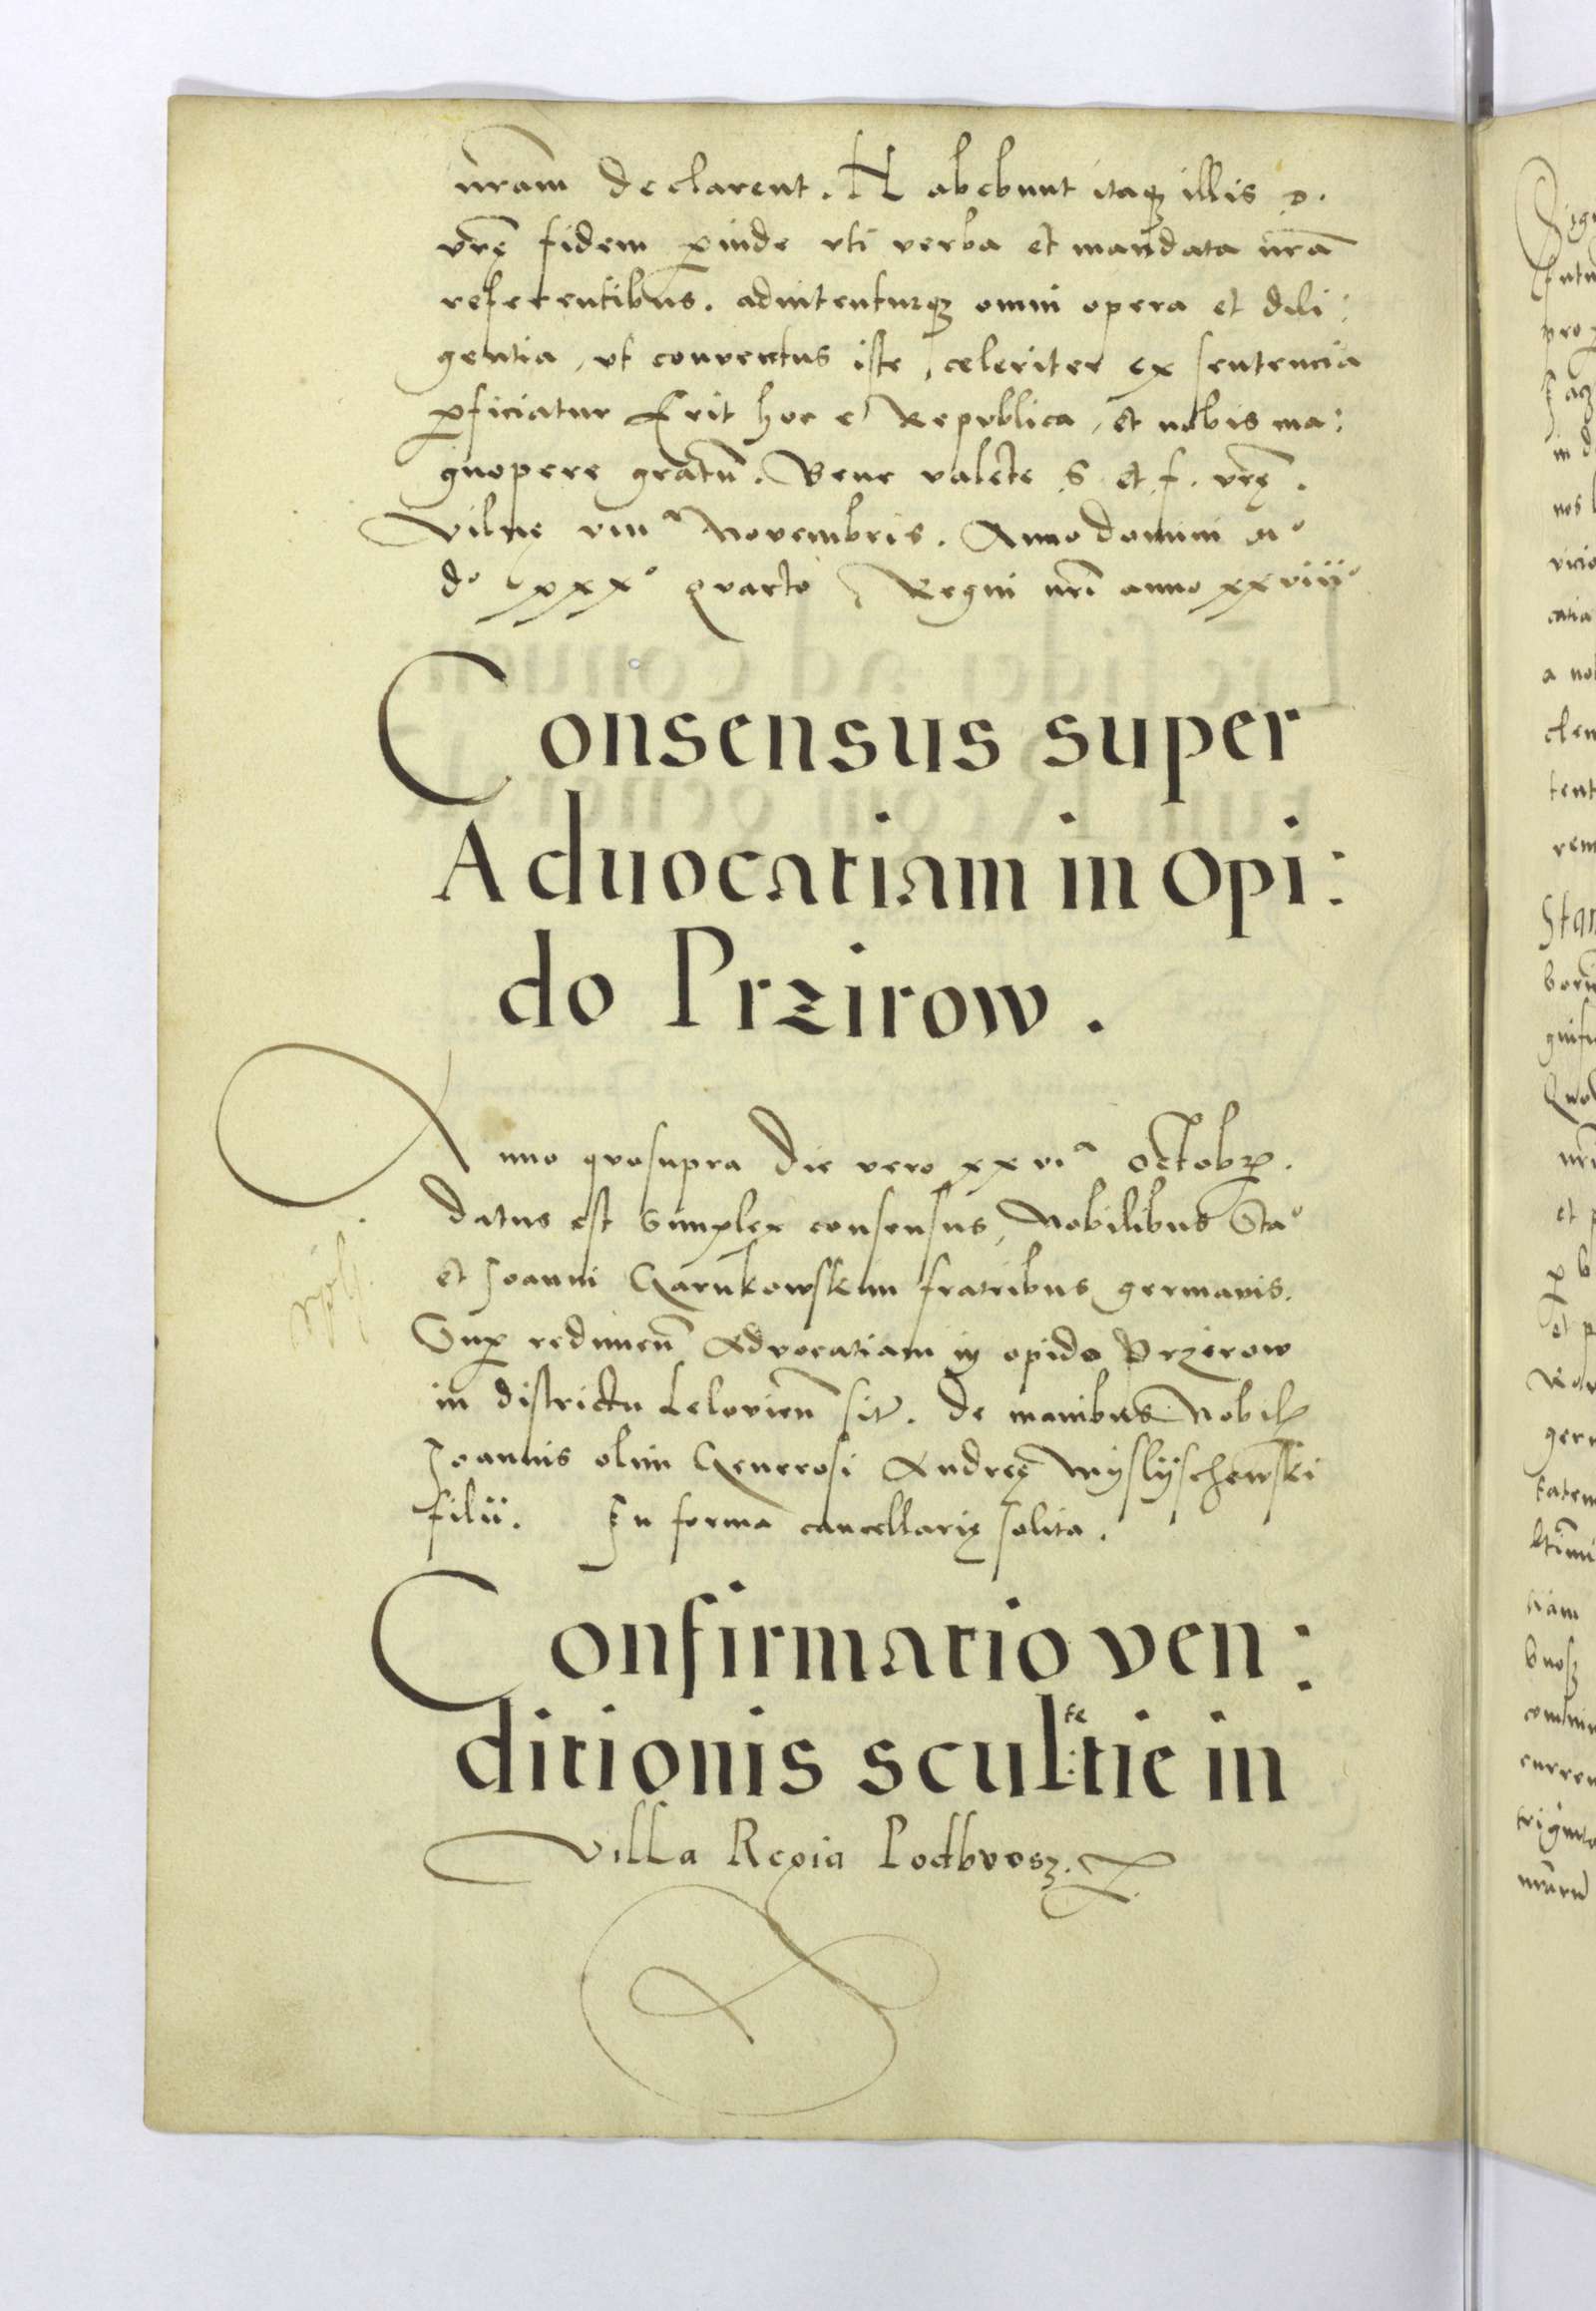 nram̄ declarent. Habebunt itaqꝫ illis p.
vrę̄ fidem ꝑinde vti verba et mandata nrā
referentibus. adnitenturqꝫ omni opera et dili:
gentia, vt conventus iste, celeriter ex sentencia
ꝑficiatur Erit hoc e Republica, et nobis ma:
gnopere gratū. Bene valete S et f. vrę̄.
Vilnę viiiᵃ Novembris. Anno domini mº
dº xxxº quarto Regni nrī anno xxviiiº
Consensus super
Aduocatiam in opi:
do Przirow.
Anno quosupra die vero xxviᵃ Octobꝝ.
datus est simplex consensus, Nobilibus Staº
et Joanni Czarnkowskim fratribus germanis.
Suꝑ redimen̄ Advocatiam in opido Przirow
in districtu Lelovien̄ sit̄. de manibus Nobil̄
Joannis olim Generosi Andreę Myslyschewski
filii. In forma cancellarię solita.
Confirmatio ven:
ditionis scultetie in
Villa Regia Podbrosz.